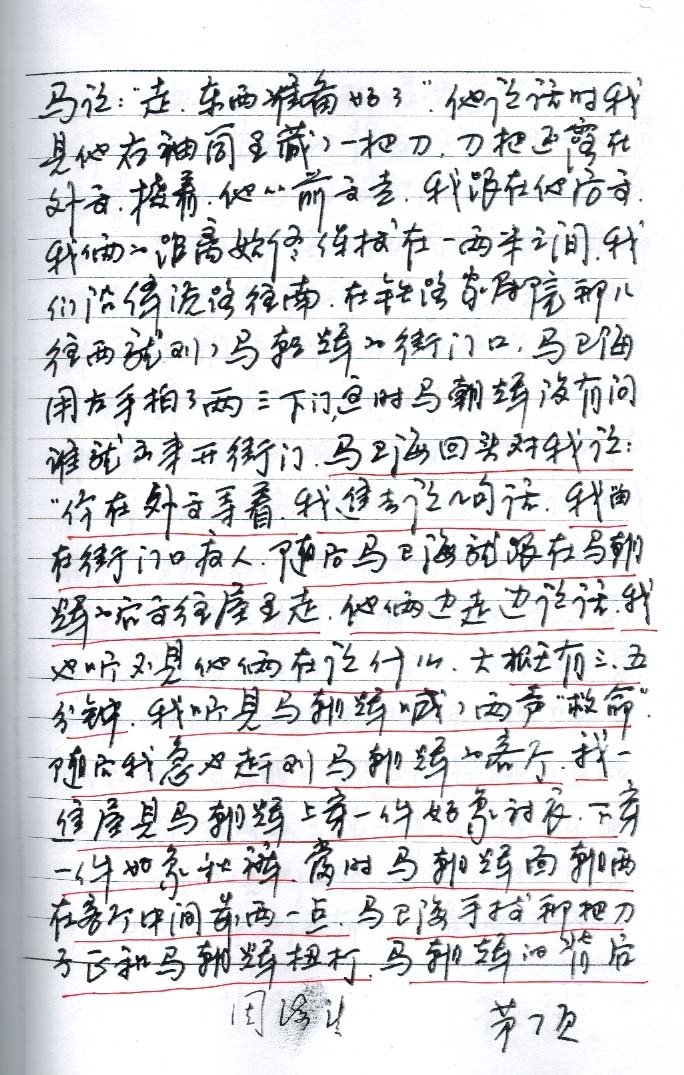 马说:“走.东西准备好了”.他说话时我
见他右袖筒里藏了一把刀.刀把还露在
外边.接着.他以前面走.我跟在他后面.
我俩的距离始终保持在一两米之间.我
们沿伟说路往南.在铁路家属院那儿
往西就到了马朝辉的街门口.马卫海
用左手拍了两三下门,这时马朝辉没有问
谁就出来开街门.马卫海回头对我说:
“你在外面等着.我进去说几句话.我由
在街门口有人.随后马卫海就跟在马朝
辉的后面往屋里走.他俩边走边说话.我
也听不见他俩在说什么.大概有三.五
分钟.我听见马朝辉喊了两声“救命”.
随后我急也赶到马朝辉的客厅.我一
进屋见马朝辉上穿一件好象衬衣.下穿
一件好象秋裤.当时马朝辉面朝西
在客厅中间靠西一点.马卫海手拔那把刀
子正和马朝辉扭打.马朝辉的背后
第7页